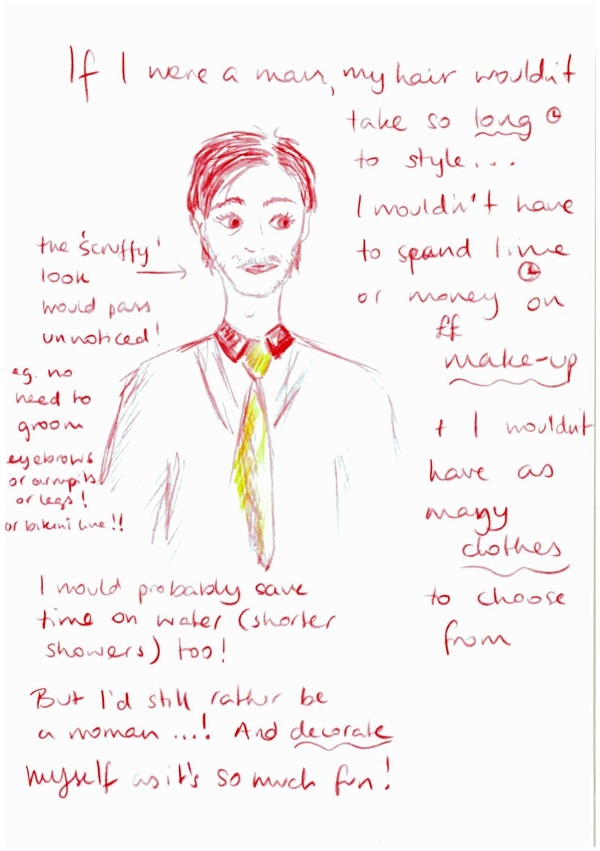 If I were a man, my hair wouldn't
take so long
to style...
I wouldn't have
to spend time
or money on
££
make-up
+ I wouldn't
have as
many
clothes
to choose
from
the 'scruffy'
look
would pass
unnoticed!
eg. no
need to
groom
eyebrows
or armpits
or legs!
or bikini line!!
I would probably save
time on water (shorter
showers) too!
But I'd still rather be
a woman ...! And decorate
myself as it's so much fun!